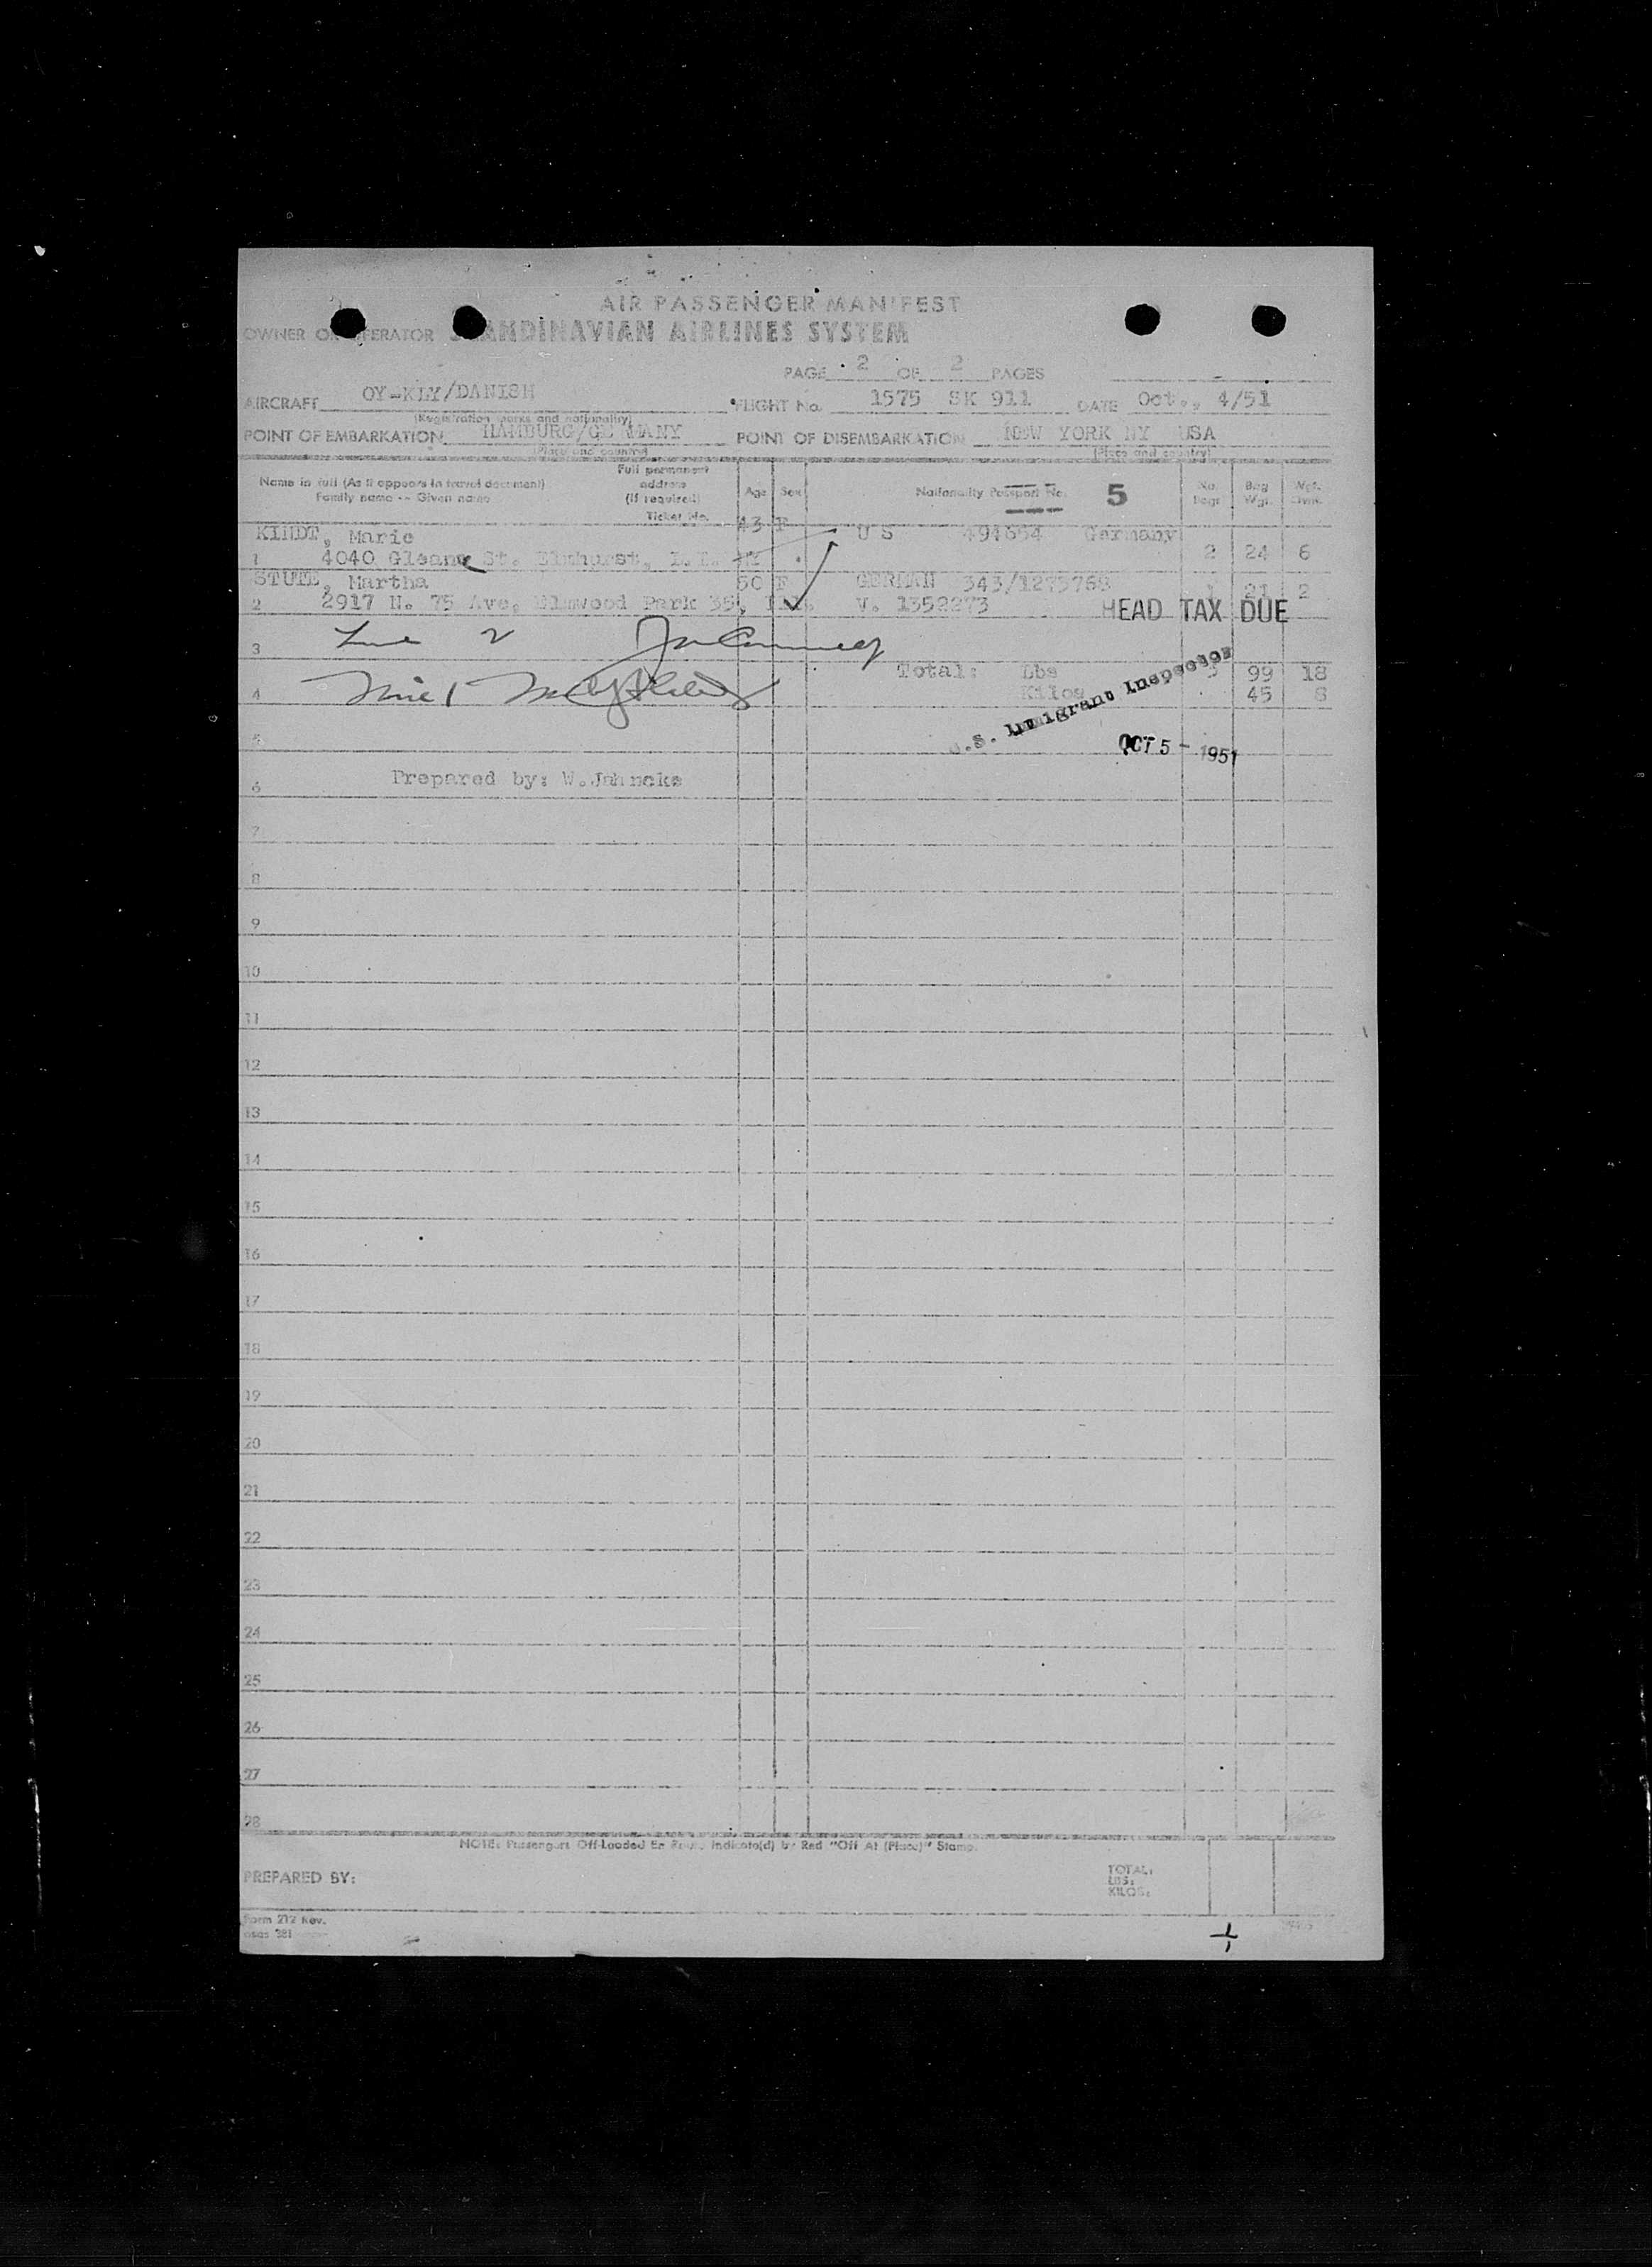 AIR PASSENGER MANIFEST
OWNER OR OPERATOR SCANDINAVIAN AIRLINES SYSTEM
PAGE 2 OF 2 PAGES
AIRCRAFT OY-KLY/DANISH FLIGHT No. 1575 SK 911 DATE Oct., 4/51
(Registration marks and nationality)
POINT OF EMBARKATION HAMBURG/GERMANY POINT OF DISEMBARKATION NEW YORK NY USA
(Place and country) (Place and country)
Name in full (As it appears in travel document) Full permanent address (If required)
Family name -- Given name Ticket No. Age Sex Nationality Passport No. 5 No. Bags Bag Wgt.
KINDT, Marie 43 F U S 494654 Germany
1 4040 Gleane St. Elmhurst, L.I. 2 24 6
STUTE, Martha 50 F GERMAN 343/1275768 1 21 2
2 2917 N. 75 Ave, Elmwood Park 35, Ill. V. 1352273 HEAD TAX DUE
3 Line 2
Total: Lbs 99 18
4 Line 1
Kilos 45 8
U.S. Immigrant Inspector
5
OCT 5 - 1951
6 Prepared by: W.Jahncke
7
8
9
10
11
12
13
14
15
16
17
18
19
20
21
22
23
24
25
26
27
28
NOTE: Passengers Off-Loaded En Route Indicate(d) by Red "Off At (Place)" Stamp.
PREPARED BY: TOTAL:
LBS:
KILOS:
Form 212 Rev.